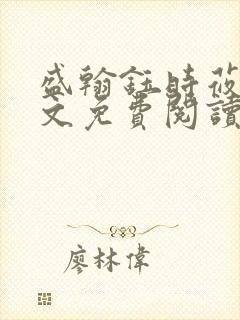 盛翰鈺時莜
文免費閱讀
廖林偉